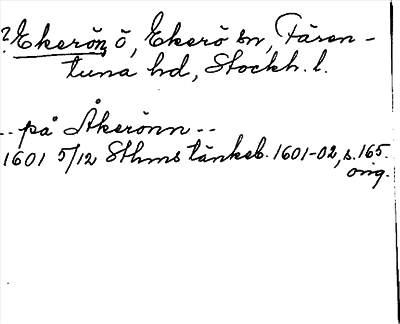 ? Ekerön, ö, Ekerö sn, Fären-
tuna hd, Stockh. l.
.. på Åkerönn ..
1601 5/12 Sthms tänkeb. 1601-02, s. 165.
orig.